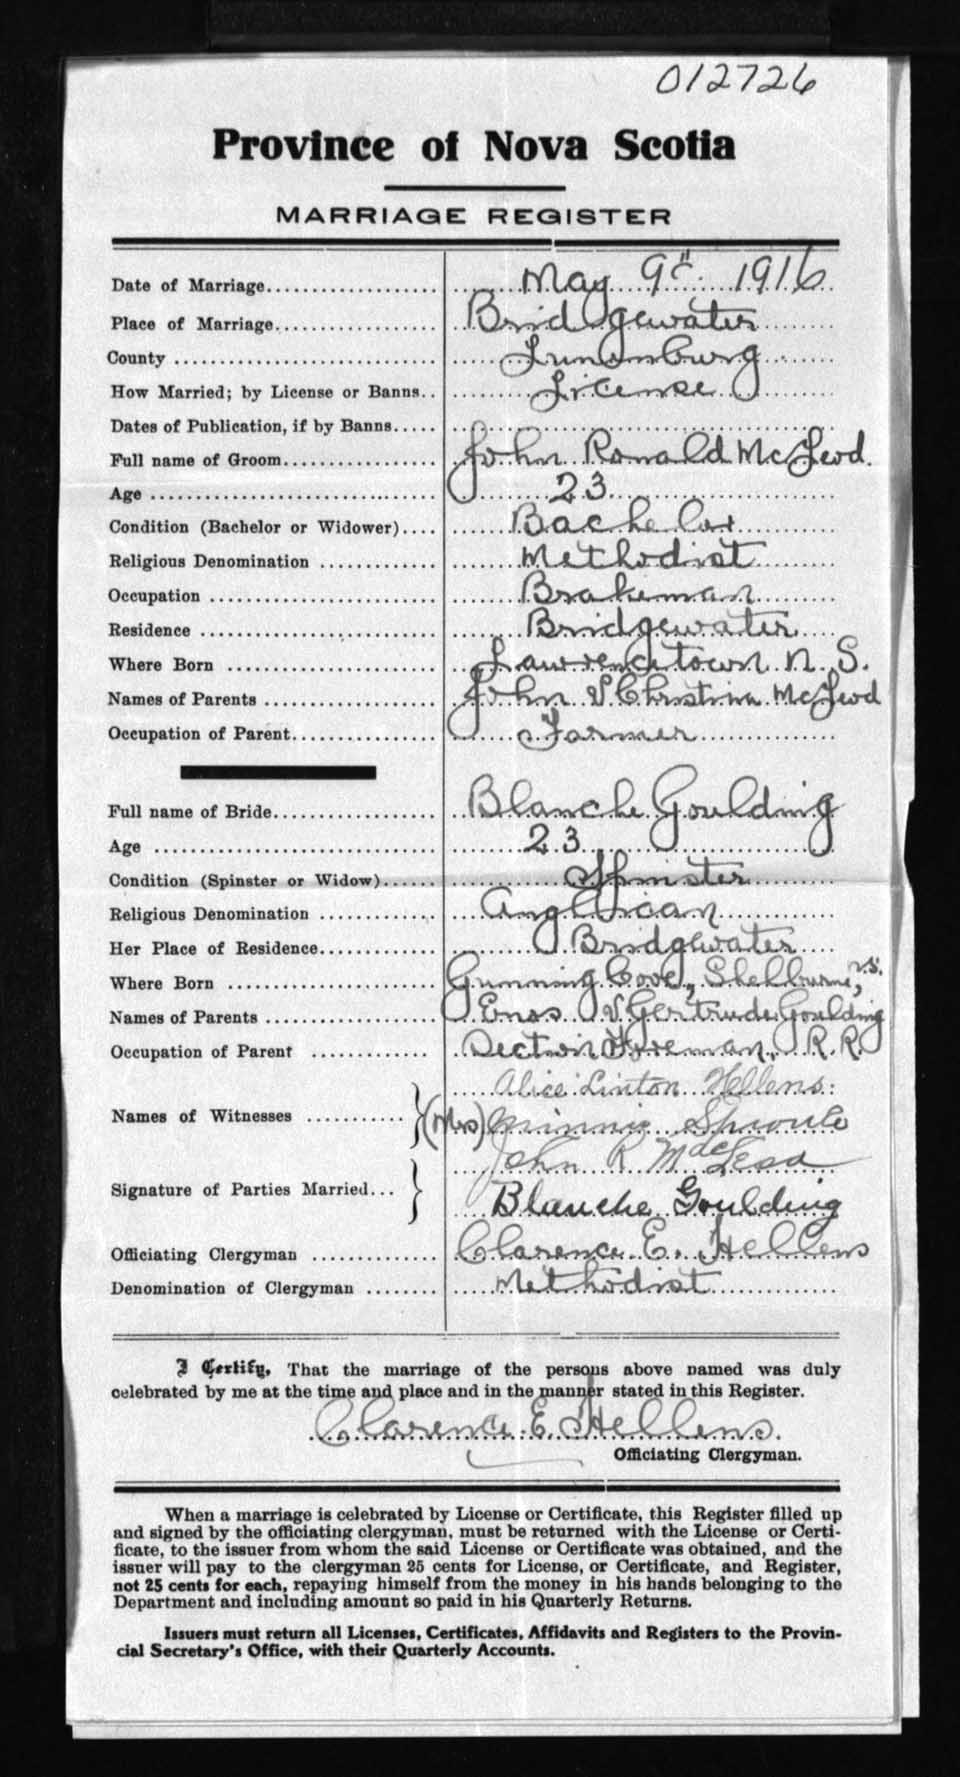 012726
Province of Nova Scotia
MARRIAGE REGISTER
Date of Marriage May 9th 1916
Place of Marriage Bridgewater
County Lunenburg
How Married; by License or Banns License
Dates of Publication, if by Banns
Full name of Groom John Ronald McLeod
Age 23
Condition (Bachelor or Widower) Bachelor
Religious Denomination Methodist
Occupation Brakeman
Residence Bridgewater
Where Born Lawrencetown N.S.
Names of Parents John & Christina McLeod
Occupation of Parent Farmer
Full name of Bride Blanche Goulding
Age 23
Condition (Spinster or Widow) Spinster
Religious Denomination Anglican
Her Place of Residence Bridgewater
Where Born Gunning Cove, Shelburne, N.S.
Names of Parents Enos & Gertrude Goulding
Occupation of Parent Section Foreman, R.R.
Alice Linton Hellens
Names of Witnesses (Mrs) Minnie Sproule
John R. MacLeod
Signature of Parties Married
Blanche Goulding
Officiating Clergyman Clarence E. Hellens
Denomination of Clergyman Methodist
I Certify, That the marriage of the persons above named was duly
celebrated by me at the time and place and in the manner stated in this Register.
Clarence E. Hellens.
Officiating Clergyman.
When a marriage is celebrated by License or Certificate, this Register filled up
and signed by the officiating clergyman, must be returned with the License or Certi-
ficate, to the issuer from whom the said License or Certificate was obtained, and the
issuer will pay to the clergyman 25 cents for License, or Certificate, and Register,
not 25 cents for each, repaying himself from the money in his hands belonging to the
Department and including amount so paid in his Quarterly Returns.
Issuers must return all Licenses, Certificates, Affidavits and Registers to the Provin-
cial Secretary's Office, with their Quarterly Accounts.